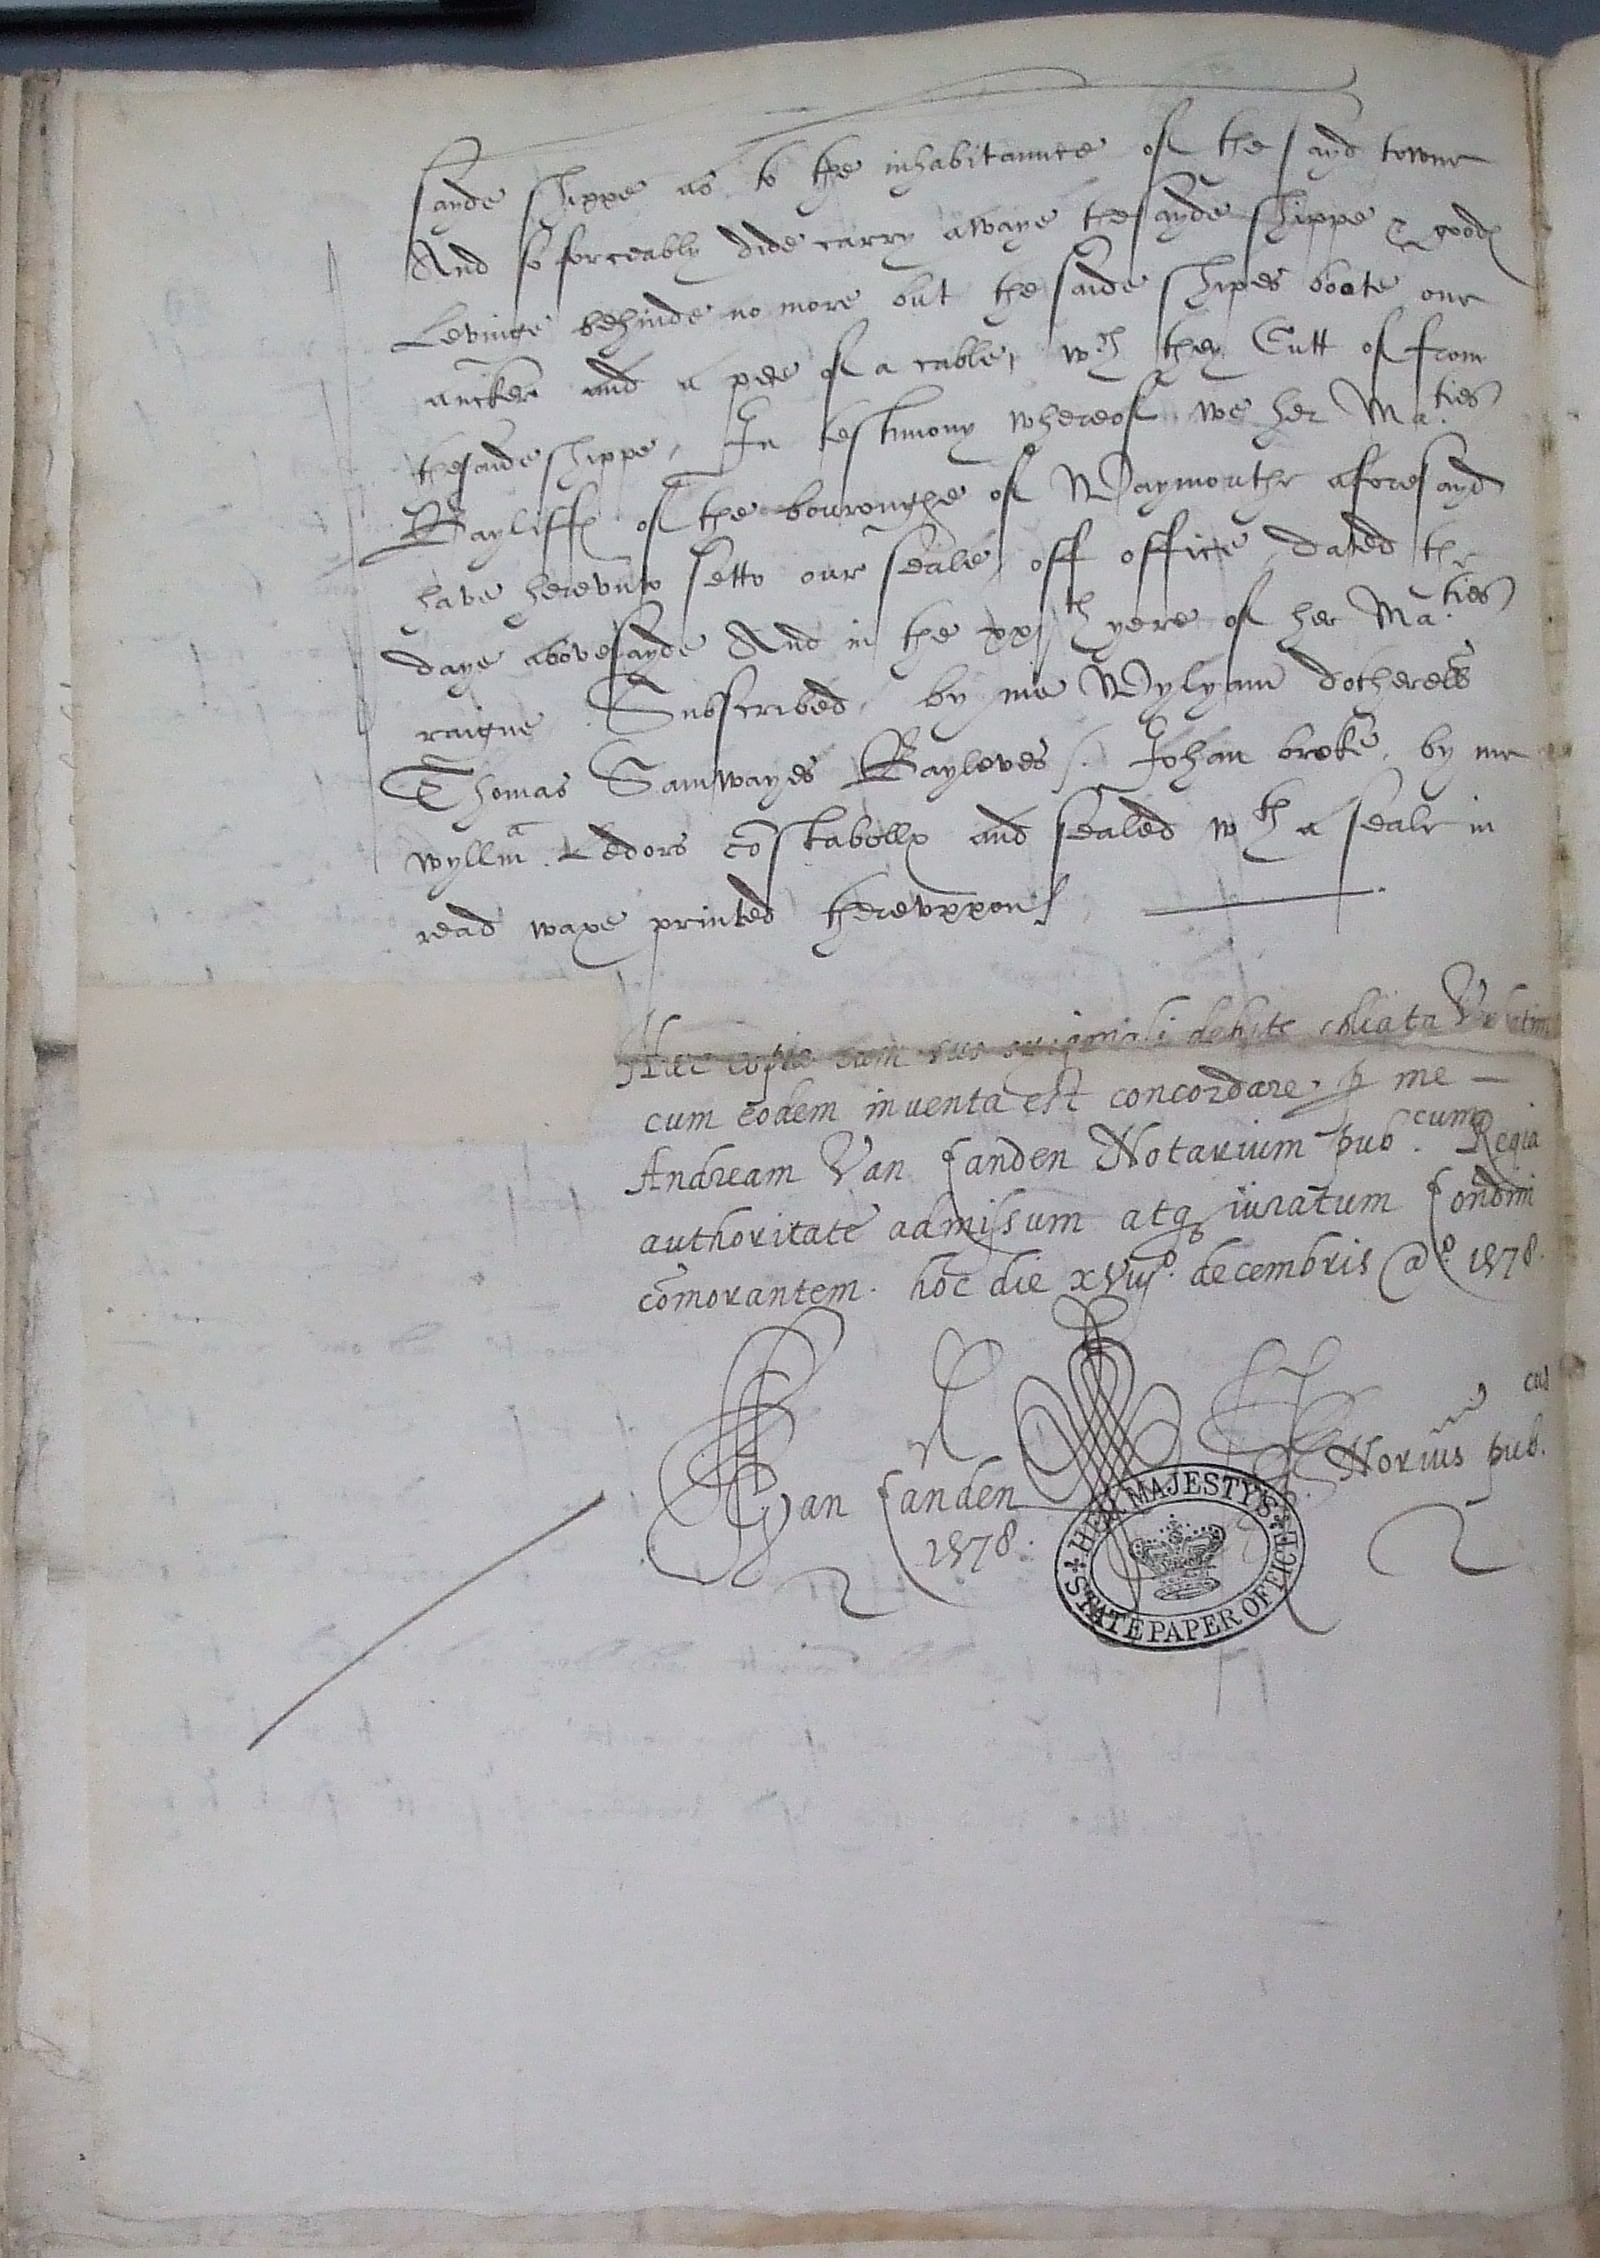 sayde shippe as to the inhabitaunce of the sayd towne
And so forceably dide carry awaye thesayde shippe & goodes
Levinge behinde no more but the saide shipes boate one
ancker and a pece of a cable, wch they Cutt of from
thesaide shippe, In testimony whereof we her Ma.ties
Bayliffes of the bouroughe of Waymouthe aforesayd
have herevnto setto our seale off office dated the
daye abovesayde And in the xxjth yere of her Ma.ties
raigne Subscribed, by me Wylyam dotherell
Thomas Samwayes Bayleves /. Johan broke, by me
wyllm Ledors cōstabellx and sealed wth a seale in
read waxe printed therevppon/
Haec copia cum suo originali debite collata Verbatim
cum eodem inventa est concordare. p me —
Andream Van Landen Notarium pub.cum Regia
authoritate admissum atq iuratum Londini
cōmorantem. hoc die xviijo. decembris ao. 1578.
A Van Landen
1578.
Norius pub.cus
HER MAJESTY'S
STATE PAPER OFFICE